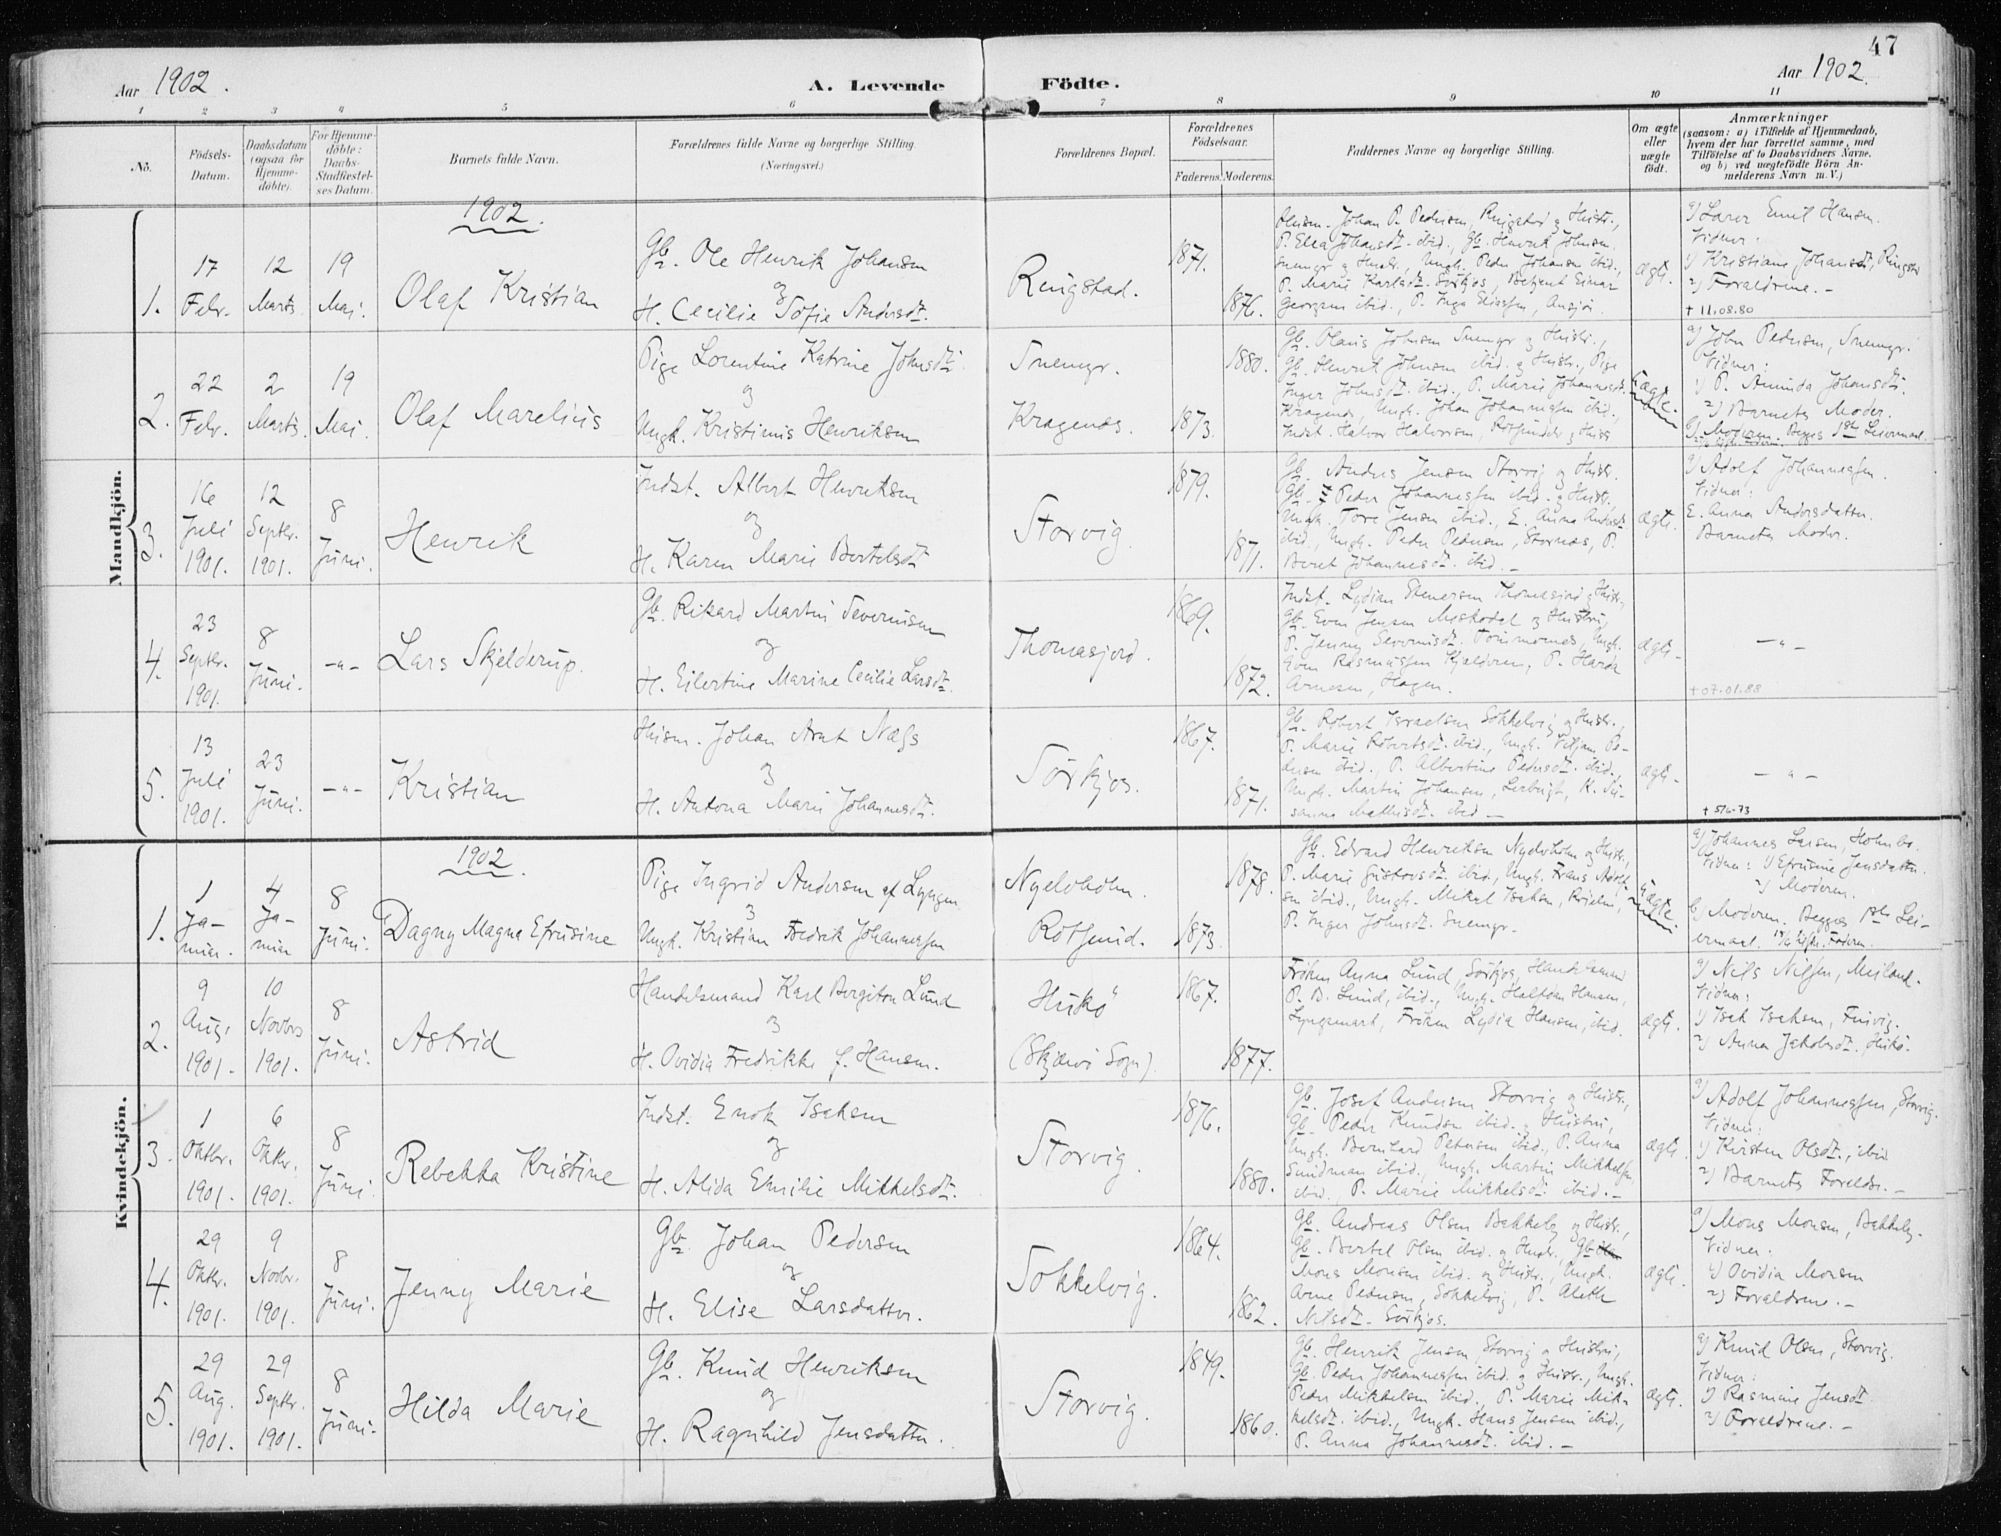 47
Aar 1902.
A. Levende
Födte.
Aar 1902
1 2 3 4 5 6 7 8 9 10 11
No.
Födsels-
Datum.
Daabsdatum
(ogsaa for
Hjemme-
döbte).
For Hjemme-
döbte:
Daabs-
Stadfæstel-
ses Datum.
Barnets fulde Navn.
Forældrenes fulde Navne og borgerlige Stilling
(Næringsvei.)
Forældrenes Bopæl.
Forældrenes
Födselsaar.
Faderens. Moderens.
Faddernes Navne og borgerlige Stilling.
Om ægte
eller
uægte
födt.
Anmærkninger
(saasom: a) i Tilfælde af Hjemmedaab,
hvem der har forrettet samme, med
Tilföielse af to Daabsvidners Navne,
og b) ved uægtefödte Börn An-
melderens Navn m. V.)
Mandkjön.
1902.
1.
17
Febr.
12
Marts
19
Mai.
Olaf Kristian
Gb. Ole Henrik Johansen
og
H. Cecilie Sofie Andersdt.
Ringstad.
1871.
1876.
ægte.
a) Lærer Emil Hansen.
Vidner:
1) Kristiane Johansdt, Ringstad
2) Forældrene. -
† 11.08.80
2.
22
Febr.
2
Marts
19
Mai.
Olaf Marelius
Pige Lorentine Katrine Johnsdt
og
Ungk. Kristinus Henriksen
Snemyr.
Kragenæs.
1880.
1873.
Gb. Olaus Johnsen Snemyr og Hustr.,
Gb. Henrik Johnsen ibid. og Hustr., Pige
Inger Johnsdt. ibid., P. Marie Johannesdt.
Kragenæs, Ungk. Johan Johannessen ibid.,
Indst. Halvor Halvorsen, Rotsundet og Hustr
Uægte.
a) John Pedersen, Snemyr.
Vidner:
1) P. Aminda Johansdt.
2) Barnets Moder.
b) Moderen. Begges 1ste Leiermaal.
3.
16
Juli
1901.
12
Septbr.
1901.
8
Juni.
Henrik
Indst. Albert Henriksen
og
H. Karen Marie Bertelsdt
Storvig.
1879.
1871.
Gb. Andres Jensen Storvig og Hustr.
Gb. Peder Johannessen ibid. og Hustr.
Ungk. Tore Jensen ibid., E. Anna Andersdt
ibid., Ungk. Peder Pedersen, Stornæs, P.
Beret Johannesdt. ibid. -
ægte.
a) Adolf Johannessen.
Vidner:
E. Anna Andersdatter.
Barnets Moder.
4.
23
Septbr.
1901.
8
Juni.
-"-
Lars Skjelderup.
Gb. Rikard Martin Severinsen
og
H. Eilertine Marine Cecilie Larsdt.
Thomasjord.
1869.
1872.
Indst. Lydian Stenersen Thomasjord og Hustr.,
Gb. Even Jensen Moskodal og Hustru,
P. Jenny Severinsdt. Ungk.
Even Rasmussen Kjelderen, P. Harda
Arnesen, Hagen.
ægte -
-"-
† 07.01.88
5.
13
Juli
1901.
23
Juni.
-"-
Kristian
Husm. Johan Arnt Næss
og
H. Antona Marie Johannesdt.
Sörkjos.
1867.
1871.
Gb. Robert Israelsen Sokkelvig og Hustr.,
P. Marie Robertsdt. ibid., Ungk. Viljam Pe-
dersen ibid., P. Albertine Pedersdt. ibid.,
Ungk. Martin Johansen, Leirbugt, K. Su-
sanna Mathisdt. ibid -
ægte -
-"-
† 5/6-73
Kvindekjön.
1902.
1.
1
Ja-
nuar.
4
Ja-
nuar
8
Juni.
Dagny Magna Efrusine
Pige Ingrid Andersen af Lyngen
og
Ungk. Kristian Fredrik Johannessen
Nyeloholm.
Rotsund.
1878.
1873.
Gb. Edvard Henriksen Nyeloholm og Hustr.,
P. Marie Gustavsdt. ibid., Ungk. Frans Adolf-
sen ibid., Ungk. Mikal Isaksen,
P. Inger Johnsdt. Snemyr.
Uægte.
a) Johannes Larsen, Holmbo.
Vidner: 1) Efrusine Jensdatter.
2) Moderen.
b) Moderen. Begges 1ste Lei-
ermaal.
2.
9
Aug.
1901.
10
Novbr
1901.
8
Juni.
Astrid
Handelsmand Karl Bergiton Lund
og
H. Ovidia Fredrikke f. Hansen.
Hukö
(Skjærvö Sogn).
1867.
1877.
Fröken Anna Lund, Sörkjos, Handelsmand
P. B. Lund, ibid., Ungk. Halfdan Hansen,
Lyngsmark, Fröken Lydia Hansen, ibid.
ægte.
a) Nils Nilsen, Meiland.
Vidner:
1) Isak Isaksen,
2) Anna Jakobsdt. Hukö.
3.
1
Oktbr.
1901.
6
Oktbr.
1901.
8
Juni.
Rebekka Kristine
Indst. Enok Isaksen
og
H. Alida Emilie Mikkelsdt.
Storvig.
1876.
1880.
Gb. Josef Andersen Storvig og Hustr.,
Gb. Peder Knudsen ibid. og Hustru,
Ungk. Bernhard Petersen ibid., P. Anna
Snidman ibid., Ungk. Martin Mikkelsen
ibid. P. Marie Mikkelsdt. ibid. -
ægte.
a) Adolf Johannessen, Storvig.
Vidner:
1) Kirsten Olsdt., ibid
2) Barnets Foreldre. -
4.
29
Oktbr.
1901.
9
Novbr.
1901.
8
Juni.
Jenny Marie
Gb. Johan Pedersen
og
H. Elise Larsdatter.
Sokkelvig.
1864.
1862.
Gb. Andreas Olsen Bakkeby og Hustr.,
Gb. Bertel Olsen ibid. og Hustr., Gb
Mons Monsen ibid. og Hustr., Ungk.
Arne Pedersen, Sokkelvig, P. Aleth
Nilsdt. Sörkjos.
ægte.
a) Mons Monsen, Bakkeby.
Vidner:
1) Ovidia Monsen
2) Forældrene. -
5.
29
Aug.
1901.
29
Septbr.
1901.
8
Juni.
Hilda Marie
Gb. Knud Henriksen
og
H. Ragnhild Jensdatter.
Storvig.
1849.
1860.
Gb. Henrik Jensen Storvig og Hustru,
Gb. Peder Johannessen ibid. og Hustr., Ungk.
Peder Mikkelsen ibid., P. Marie Mik-
kelsdt. ibid., Ungk. Hans Jensen ibid.,
P. Anna Johannesdt. ibid. -
ægte.
a) Knud Olsen, Storvig.
Vidner:
1) Rasmine Jensdt.
2) Forældrene. -